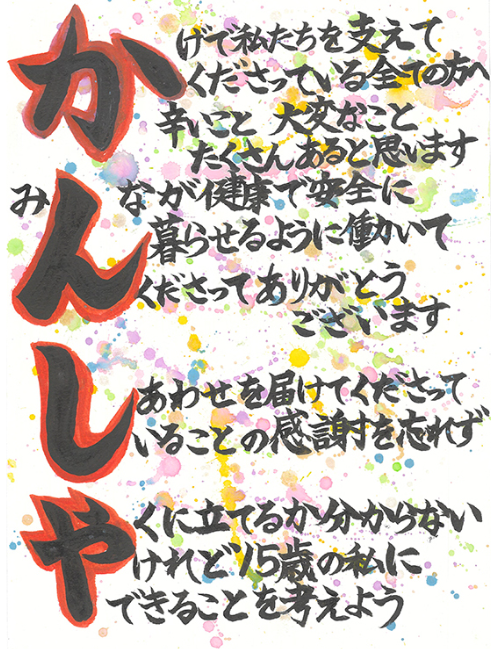 かげで私たちを支えて
くださっている全ての方へ
辛いこと 大変なこと
たくさんあると思います
みんなが健康で安全に
暮らせるように働かいて
くださってありがとう
ございます
しあわせを届けてくださって
いることの感謝を忘れず
やくに立てるか分からない
けれど15歳の私に
できることを考えよう